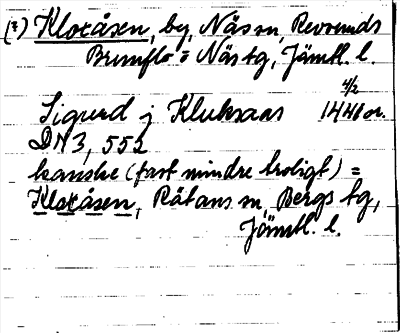 (?) Kloxåsen, by, Näs sn, Revsunds
Brunflo = Näs tg, Jämtl. l.
4/2
Sigurd j Kluksaas 1441 or.
DN 3, 552
kanske (fast mindre troligt) =
Kloxåsen, Rätans sn, Bergs tg,
Jämtl. l.